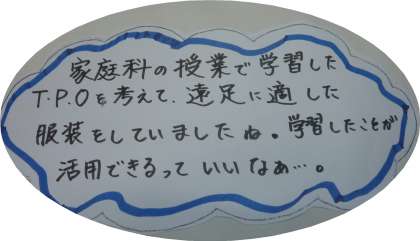 家庭科の授業で学習した
T.P.Oを考えて、遠足に適した
服装をしていましたね。学習したことが
活用できるって いいなぁ…。